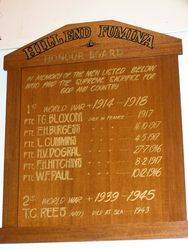 HILL END FUMINA
HONOUR BOARD
IN MEMORY OF THE MEN LISTED BELOW
WHO PAID THE SUPREME SACRIFICE FOR
GOD AND COUNTRY
1ST WORLD WAR 1914-1918
PTE T.G. BLOXOM DIED IN FRANCE 1917
PTE E.H. BURGESS 16-10-1917
PTE L. CUMMINS 4-5-1917
PTE N.V. DOSRAL 27-7-1916
PTE F.H. HITCHINS 8-2-1917
PTE W.F. PAUL 10-12-1916
2ND WORLD WAR 1939-1945
T.C. REES NAVY DIED AT SEA 1943